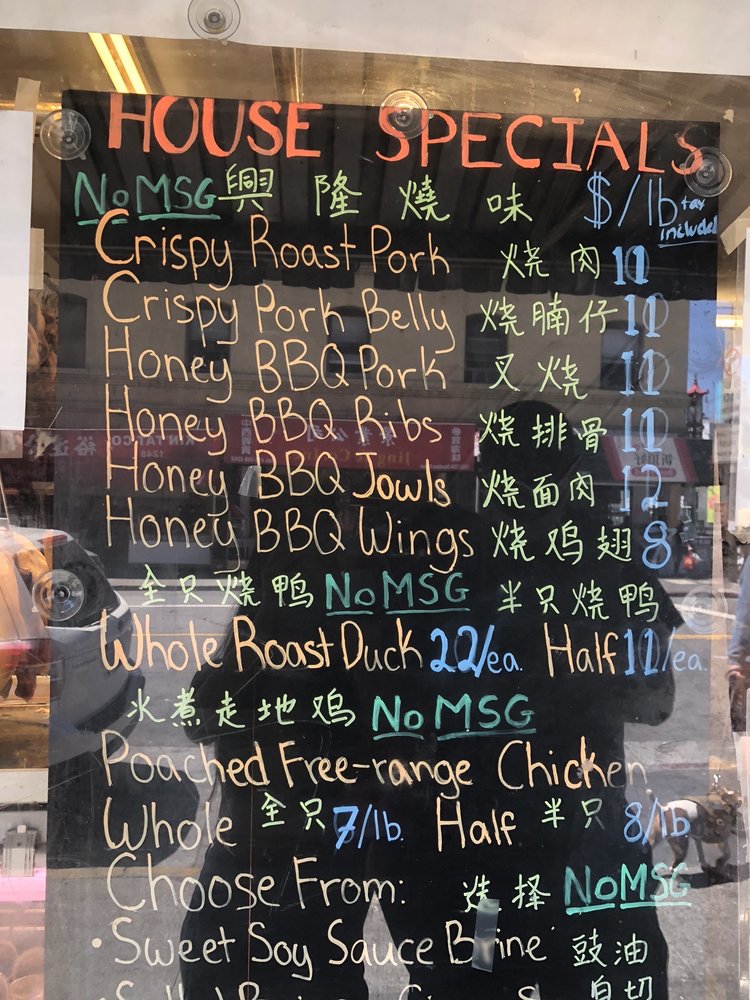 HOUSE SPECIALS
No MSG 興隆燒味 $/lb tax included
Crispy Roast Pork 烧肉 11
Crispy Pork Belly 烧腩仔 11
Honey BBQ Pork 叉烧 11
Honey BBQ Ribs 烧排骨 11
Honey BBQ Jowls 烧面肉 12
Honey BBQ Wings 烧鸡翅 8
全只烧鸭 No MSG 半只烧鸭
Whole Roast Duck 22/ea. Half 11/ea.
水煮走地鸡 No MSG
Poached Free-range Chicken
Whole 全只 7/lb. Half 半只 8/lb
Choose From: 选择 No MSG
• Sweet Soy Sauce Brine 豉油